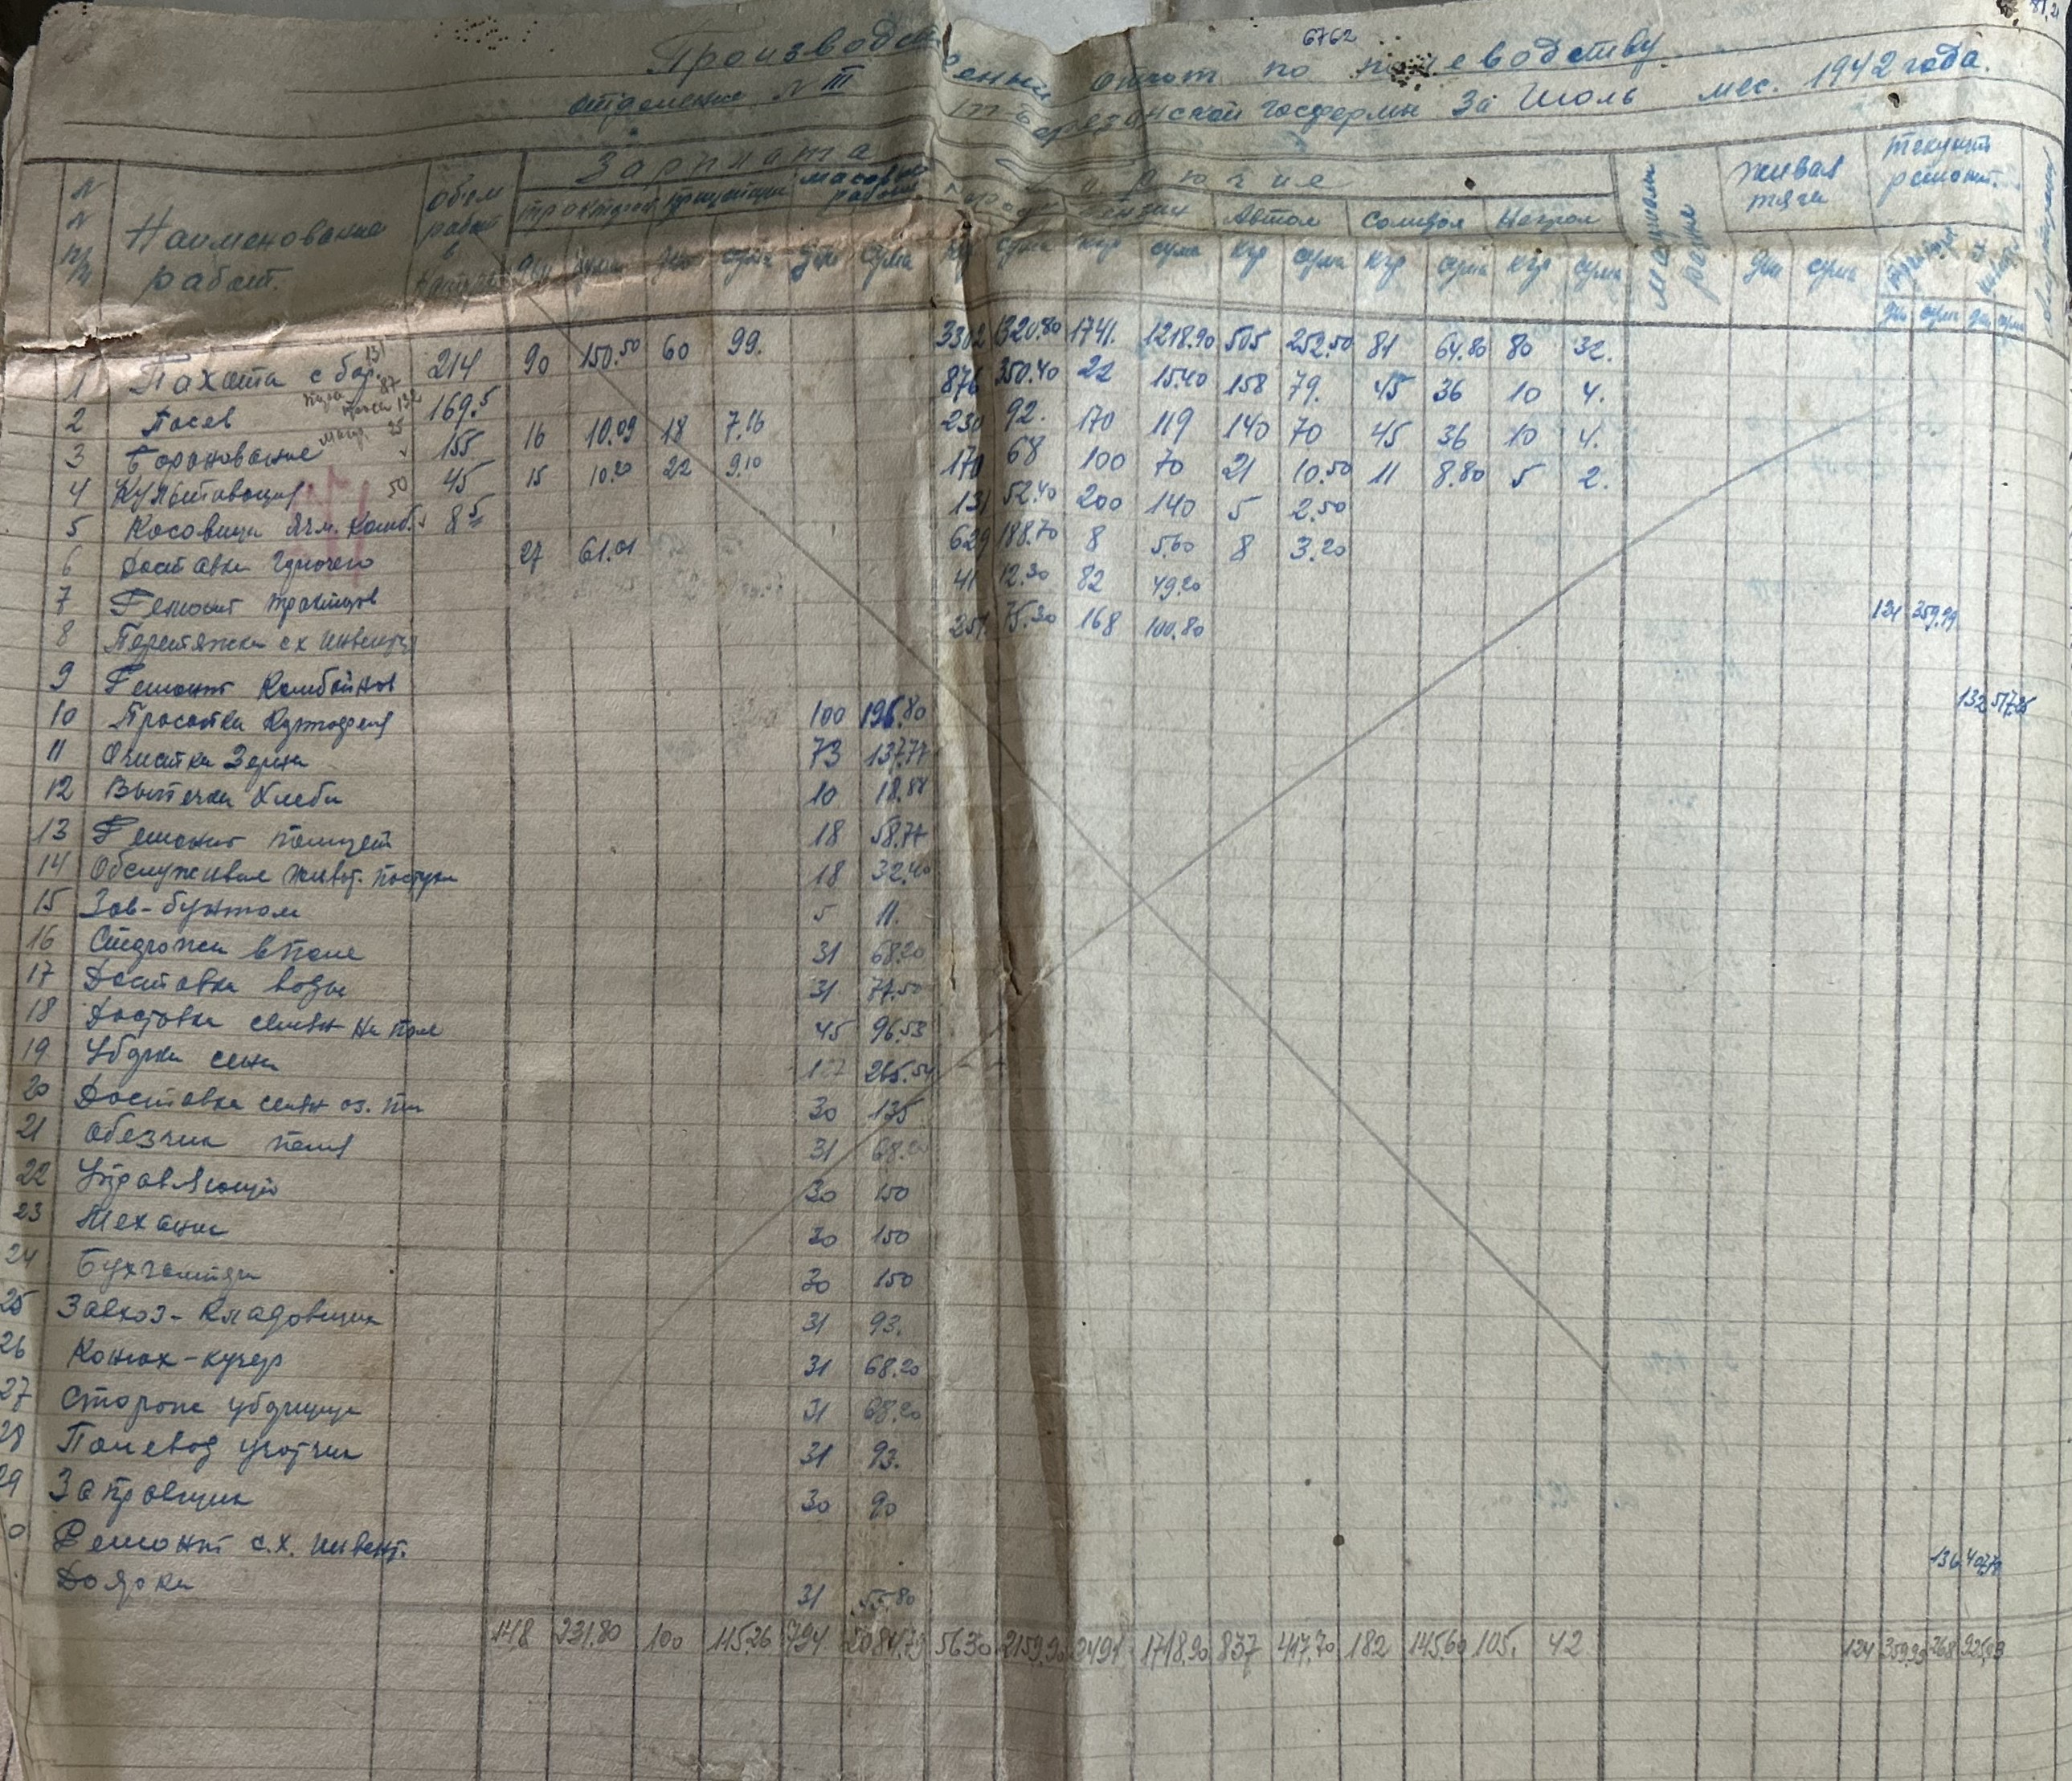 6762
Производственный отчет по полеводству
отделение N III Березанской госфермы За Июль мес. 1942 года.
N N п/п Наименование работ. Обем работ в Зарплата Горючие Живая тяга текущий ремонт.
трактористы прицепщики масовые работы бензин Автол Солидол Нигрол
дни сума дни сума дни сума кгр сума кгр сума кгр сума кгр сума кгр сума дни сума
дни сума дни сума
1 Пахота с бор. 131 214 90 150.50 60 99. 3302 1320.80 1741. 1218.90 505 252.50 81 64.80 80 32.
2 Посев 169.5 876 350.40 22 15.40 158 79. 45 36 10 4.
3 Боронование 155 16 10.09 18 7.16 230 92. 170 119 140 70 45 36 10 4.
4 Культивация 50 45 15 10.20 22 9.10 170 68 100 70 21 10.50 11 8.80 5 2.
5 Косовица Ячм. Комб. 8.5 131 52.40 200 140 5 2.50
6 Доставка Горючего 27 61.01 629 188.70 8 5.60 8 3.20
7 Ремонт тракторов 41 12.30 82 49.20 124 359.99
8 Перетяжка с х инвентаря 251 75.30 168 100.80
9 Ремонт Комбайнов 132 517.25
10 Просотка Картофеля 100 196.80
11 Очистка Зерна 73 137.77
12 Выпечка Хлеба 10 18.88
13 Ремонт помещен 18 58.77
14 Обслуживан живот. 18 32.40
15 Зав-бунтом 5 11.
16 Сторожи в поле 31 68.20
17 Доставка воды 31 77.50
18 Доставка семян На поле 45 96.53
19 Уборка сена 127 265.54
20 Доставка семян оз. пш 30 135
21 Обезчик поля 31 68.20
22 Управляющий 30 150
23 Механик 30 150
24 Бухгалтер 30 150
25 Завхоз-Кладовщик 31 93.
26 Конюх-кучер 31 68.20
27 Сторож уборщица 31 68.20
28 Полевод учотчик 31 93.
29 Заправщик 30 90
0 Ремонт с.х. инвент. 136 407.74
Доярка 31 55.80
148 231.80 100 115.26 794 2084.79 5630 2159.90 2491 1718.90 837 417.70 182 145.60 105. 42 124 359.99 268 925.03